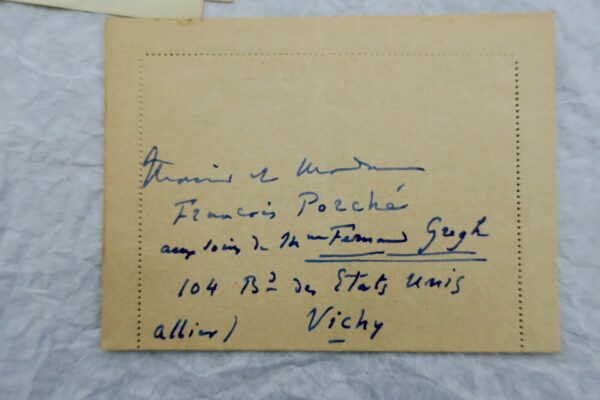 Monsieur et Madame
François Porché
aux soins de Mme Fernand Gregh
104 Bd des Etats Unis
Allier) Vichy